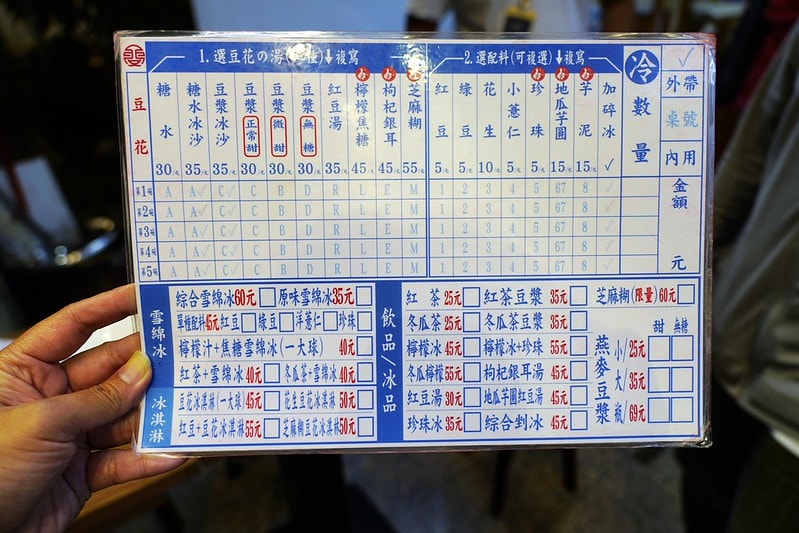 1.選豆花の湯 ↓複寫
2.選配料(可複選)↓複寫
冷
數量
✓
外帶
桌號
內用
金額
元
豆花
糖水 30元
糖水冰沙 35元
豆漿冰沙 35元
豆漿 正常甜 30元
豆漿 微甜 30元
豆漿 無糖 30元
紅豆湯 35元
檸檬焦糖 45元
枸杞銀耳 45元
芝麻糊 55元
紅豆 5元
綠豆 5元
花生 10元
小薏仁 5元
珍珠 5元
地瓜芋圓 15元
芋泥 15元
加碎冰 ✓
第1碗 A A✓ C✓ C B D R L E M 1 2 3 4 5 67 8 ✓
第2碗 A A✓ C✓ C B D R L E M 1 2 3 4 5 67 8 ✓
第3碗 A A✓ C✓ C B D R L E M 1 2 3 4 5 67 8 ✓
第4碗 A A✓ C✓ C B D R L E M 1 2 3 4 5 67 8 ✓
第5碗 A A✓ C✓ C B D R L E M 1 2 3 4 5 67 8 ✓
雪綿冰
綜合雪綿冰60元 原味雪綿冰35元
單種配料45元 紅豆 綠豆 洋薏仁 珍珠
檸檬汁+焦糖雪綿冰(一大球) 40元
紅茶+雪綿冰 40元 冬瓜茶+雪綿冰 40元
冰淇淋
豆花冰淇淋(一大球)45元 花生豆花冰淇淋 50元
紅豆+豆花冰淇淋 55元 芝麻糊豆花冰淇淋50元
飲品/冰品
紅茶 25元 紅茶豆漿 35元
冬瓜茶 25元 冬瓜茶豆漿 35元
檸檬冰 45元 檸檬冰+珍珠 55元
冬瓜檸檬 55元 枸杞銀耳湯 45元
紅豆湯 30元 地瓜芋圓紅豆湯 45元
珍珠冰 35元 綜合剉冰 45元
芝麻糊(限量)60元
甜 無糖
燕麥豆漿
小/25元
大/35元
瓶/69元